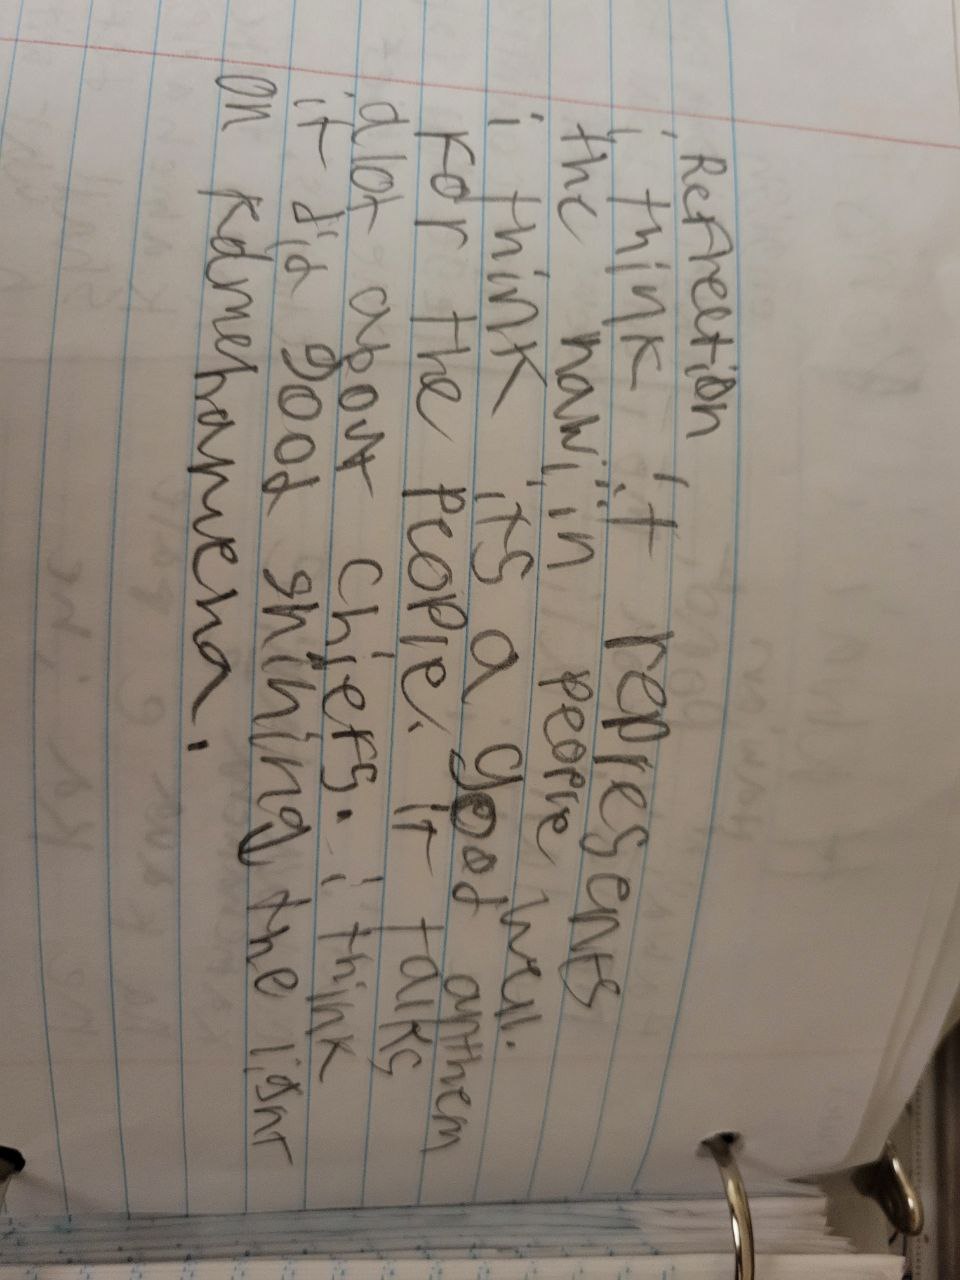 Reflection
i think it represents
the hawiiin people well.
i think its a good anthem
For the people. it talks
alot about chiefs. i think
it did good shining the light
on Kamehameha.